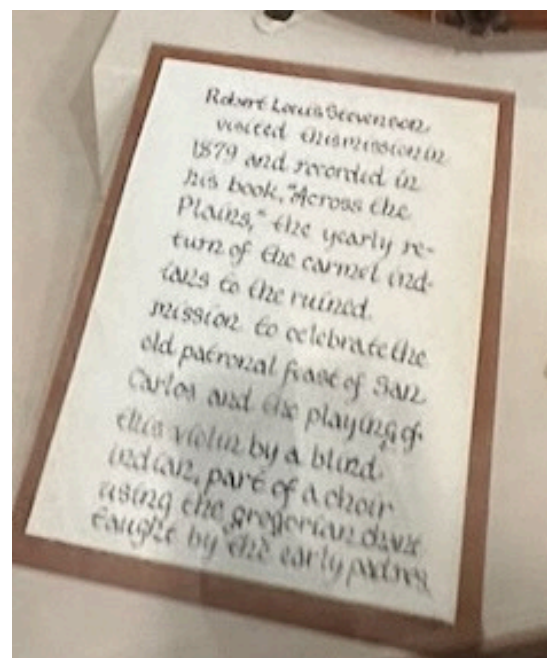 Robert Louis Stevenson
visited this mission in
1879 and recorded in
his book, "Across the
Plains," the yearly re-
turn of the carmel ind-
ians to the ruined
mission to celebrate the
old patronal feast of San
Carlos and the playing of
this violin by a blind
indian, part of a choir
using the gregorian chant
taught by the early padres